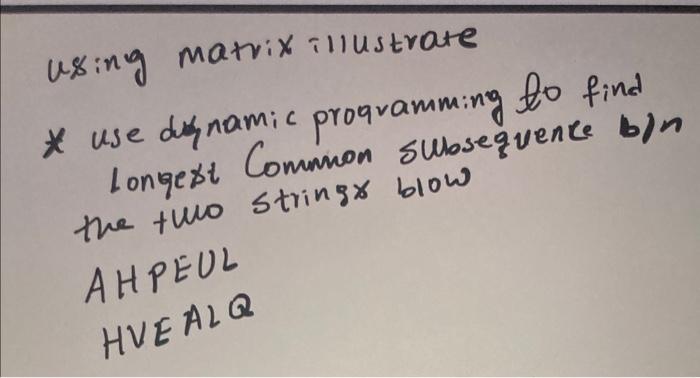 using matrix illustrate
* use dynamic programming to find
Longest Common subsequence b/n
the two strings blow
AHPEUL
HVEALQ